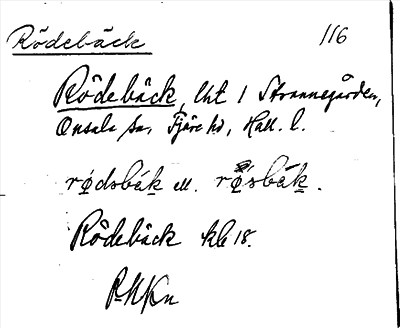 Rödebäck 116
Rödebäck, lht 1 Strannegården,
Onsala sn, Fjäre hd, Hall. l.
rǿdsbák̲ ell. rǿsbák̲.
Rödebäck kb 18.